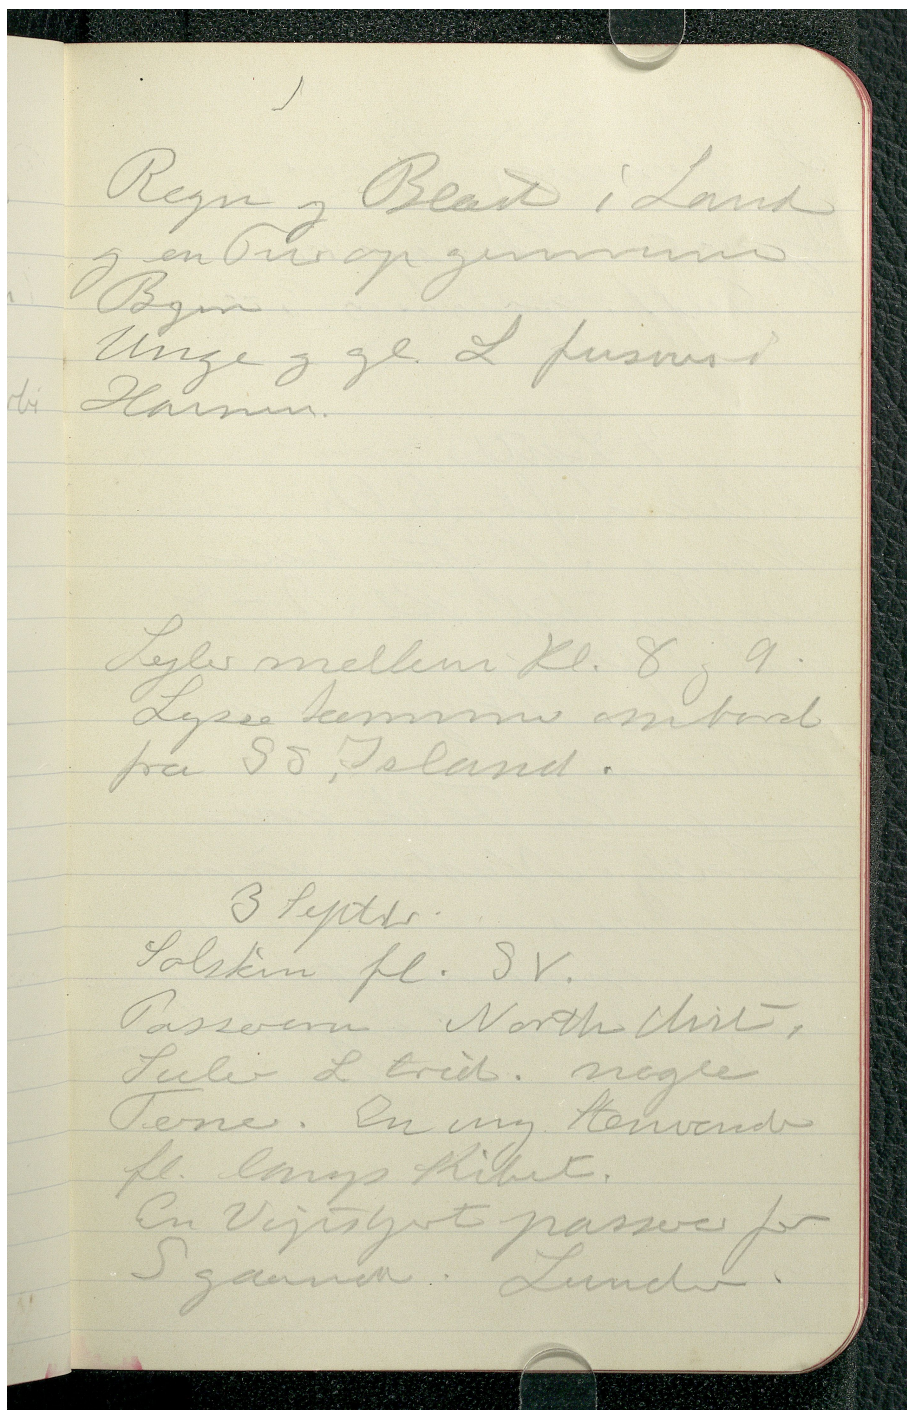 Regn og Blæst i Land
og en Tur op gennem
Byen
Unge og gl. L fuscus i
Havnen.
Sejler mellem Kl. 8 og 9.
Lyse kommer ombord
fra SS "Island.
3 Septbr.
Solskin fl. SV.
Passerer North Uist,
Suler L trid. nogle
Terner. En ung
fl. langs Skibet.
En Vipstjert passerer for
S gaaende. Lunder.